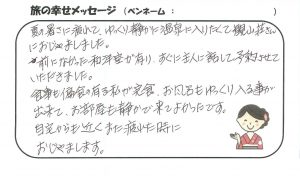 旅の幸せメッセージ (ペンネーム : )
夏の暑さに疲れて、ゆっくり静かに温泉に入りたくて 観山荘さん
におじゃましました。
前になかった和洋室が有り、すぐに主人に話して予約させて
いただきました。
食事も偏食の有る私が完食、お風呂もゆっくり入る事が
出来て、お部屋も静かで来てよかったです。
自宅からも近くまた疲れた時に
おじゃまします。